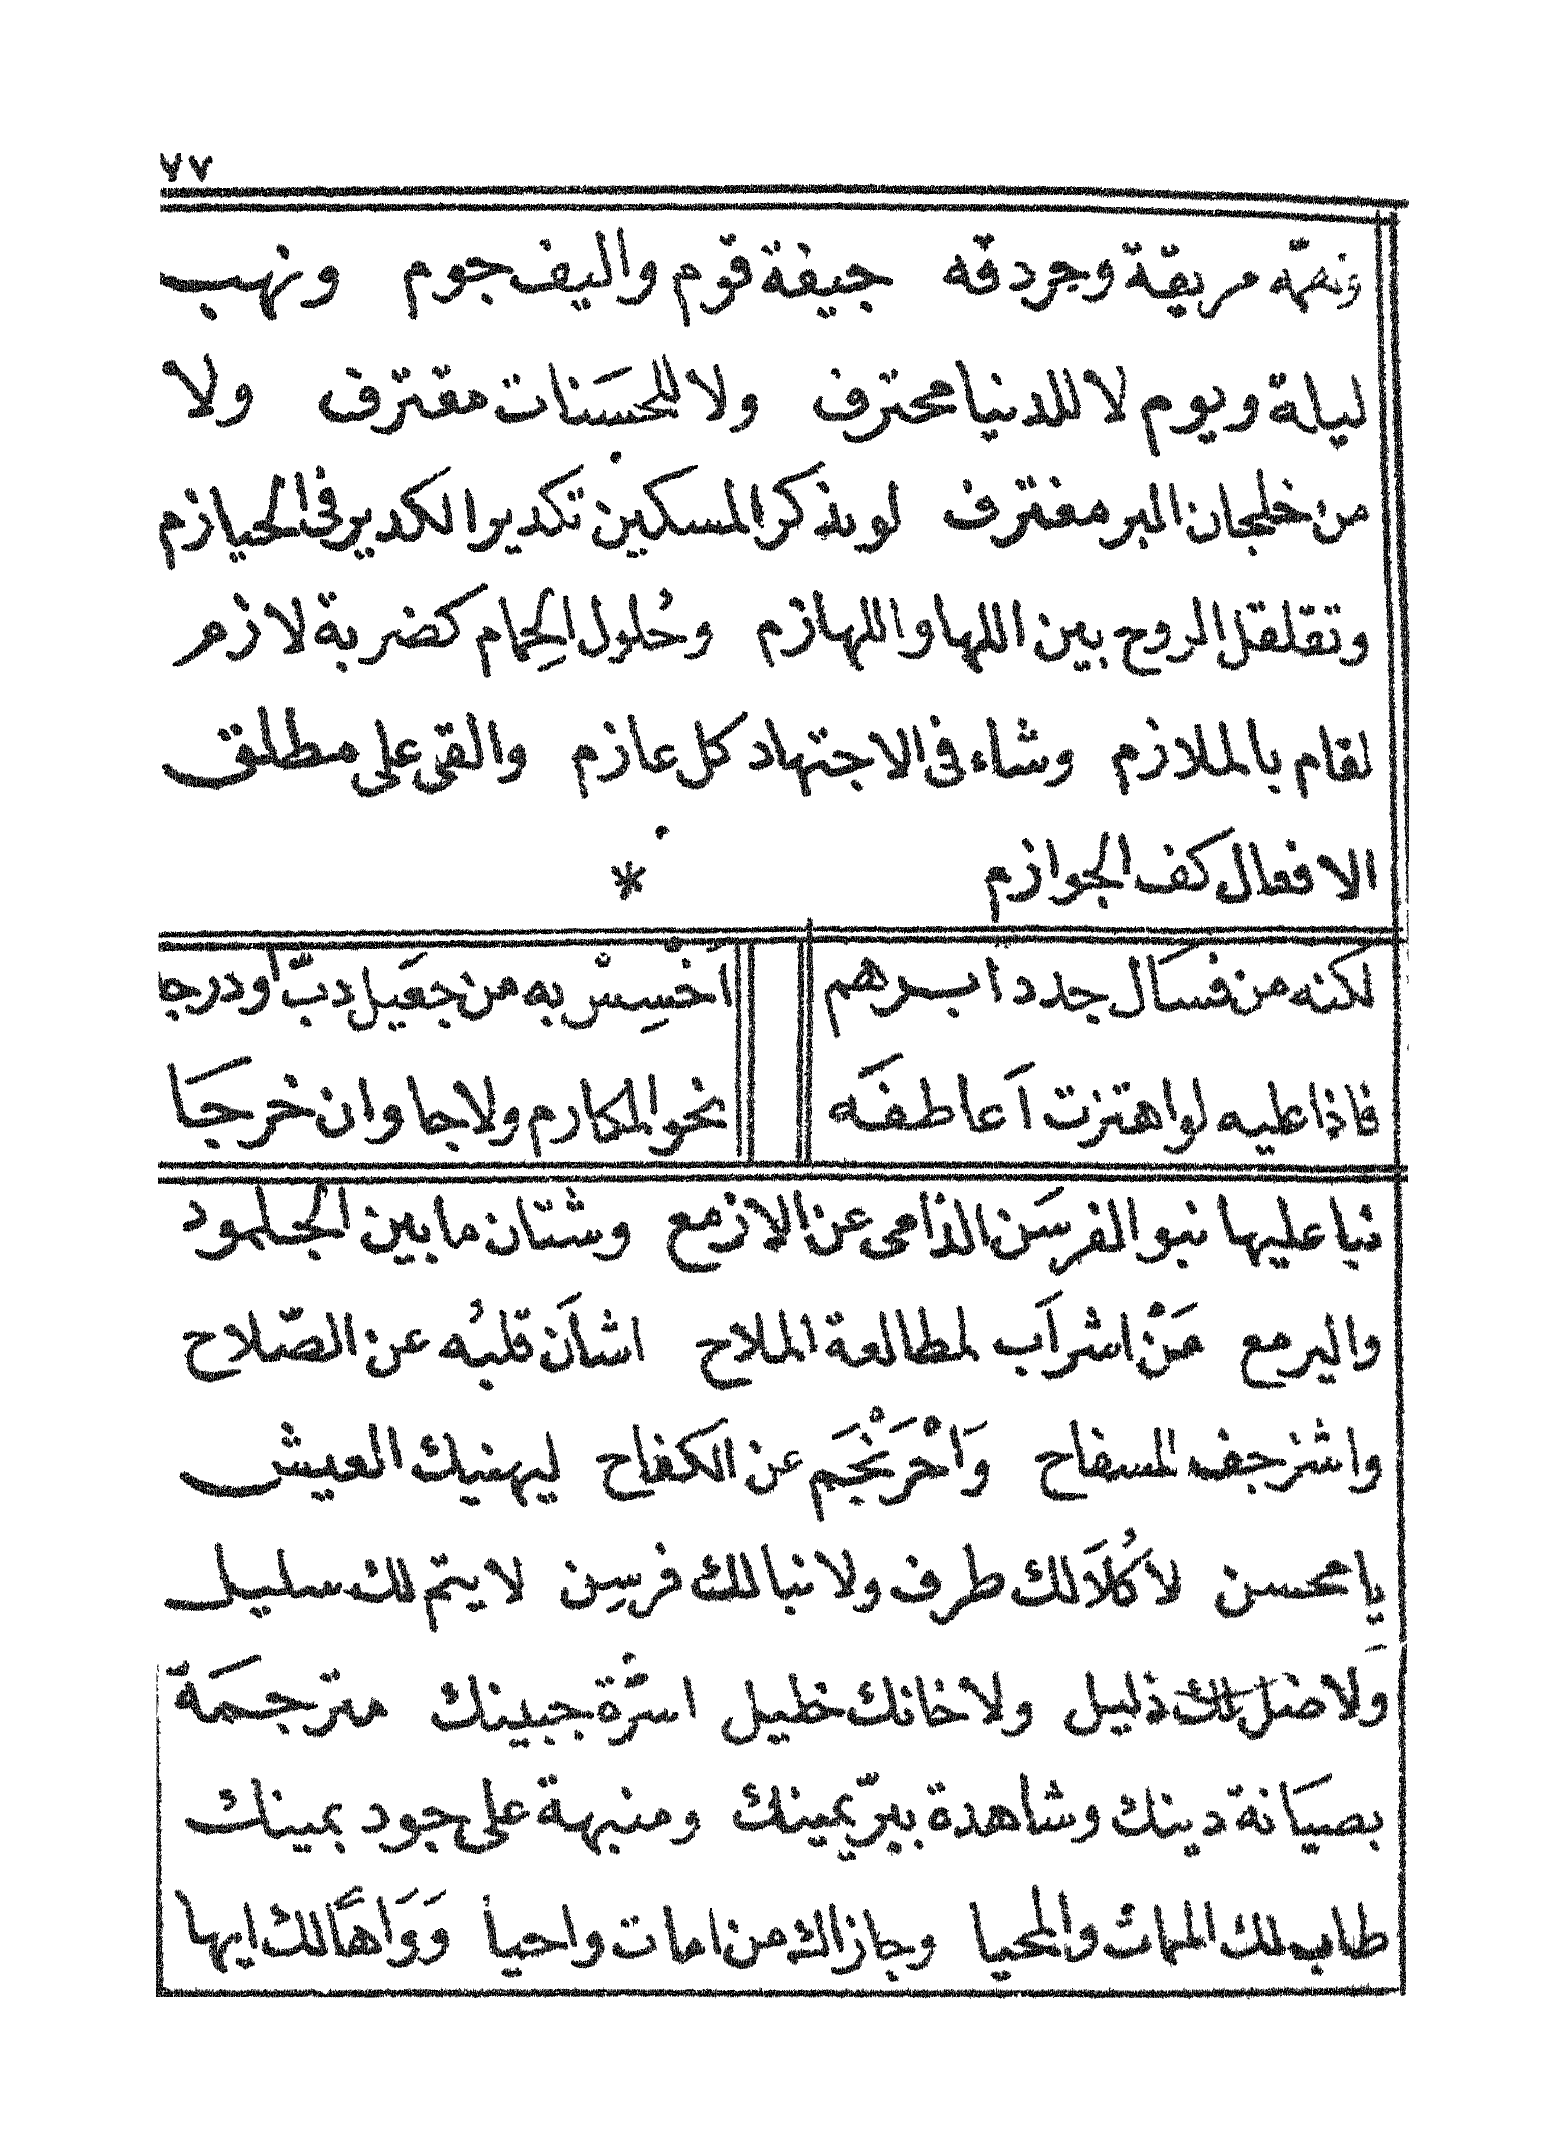 ٧٧
ونغمّه مريقة وجردقه جيفة قوم واليف جوم ونهب
ليلة ويوم لا للدنيا محترف ولا للحسَنات مقترف ولا
من خلجان البر مغترف لو يذكر المسكين تكدير الكدير فى الحيازم
وتقلقل الروح بين اللها واللهازم وحُلول الحِمام كضربة لازم
لقام بالملازم وشاء فى الاجتهاد كل عازم والقى على مطلق
الافعال كف الجوازم *
لكنه من فسَال جدد ابرهم
اَخْسِسْ به من جعَيل دبّ اودرجا
فاذا عليه لو اهتزت اَعاطفَه
نحو المكارم ولاجا وان خرجَا
نبا عليها نبو الفرسَن الذامى عن الازمع وشتان ما بين الجلمود
واليرمع مَنْ اشرأَب لمطالعة الملاح اشأَن قلبُه عن الصّلاح
واشزجف المسفاح وَاحْرَنْجَم عن الكفاح ليهنيك العيش
يا محسن لاَ كُلاَ لك طرف ولا نبا لك فرسِن لا يتم لك سليل
وَلا ضل لك ذليل ولا خانك خليل اسرّة جبينك مترجمَة
بصيَانة دينك وشاهدة ببرّ يمينك ومنبهة على جود يمينك
طاب لك المماتْ والمحيا وجازاك من امات واحيأ وَوَاهًا لك ايها